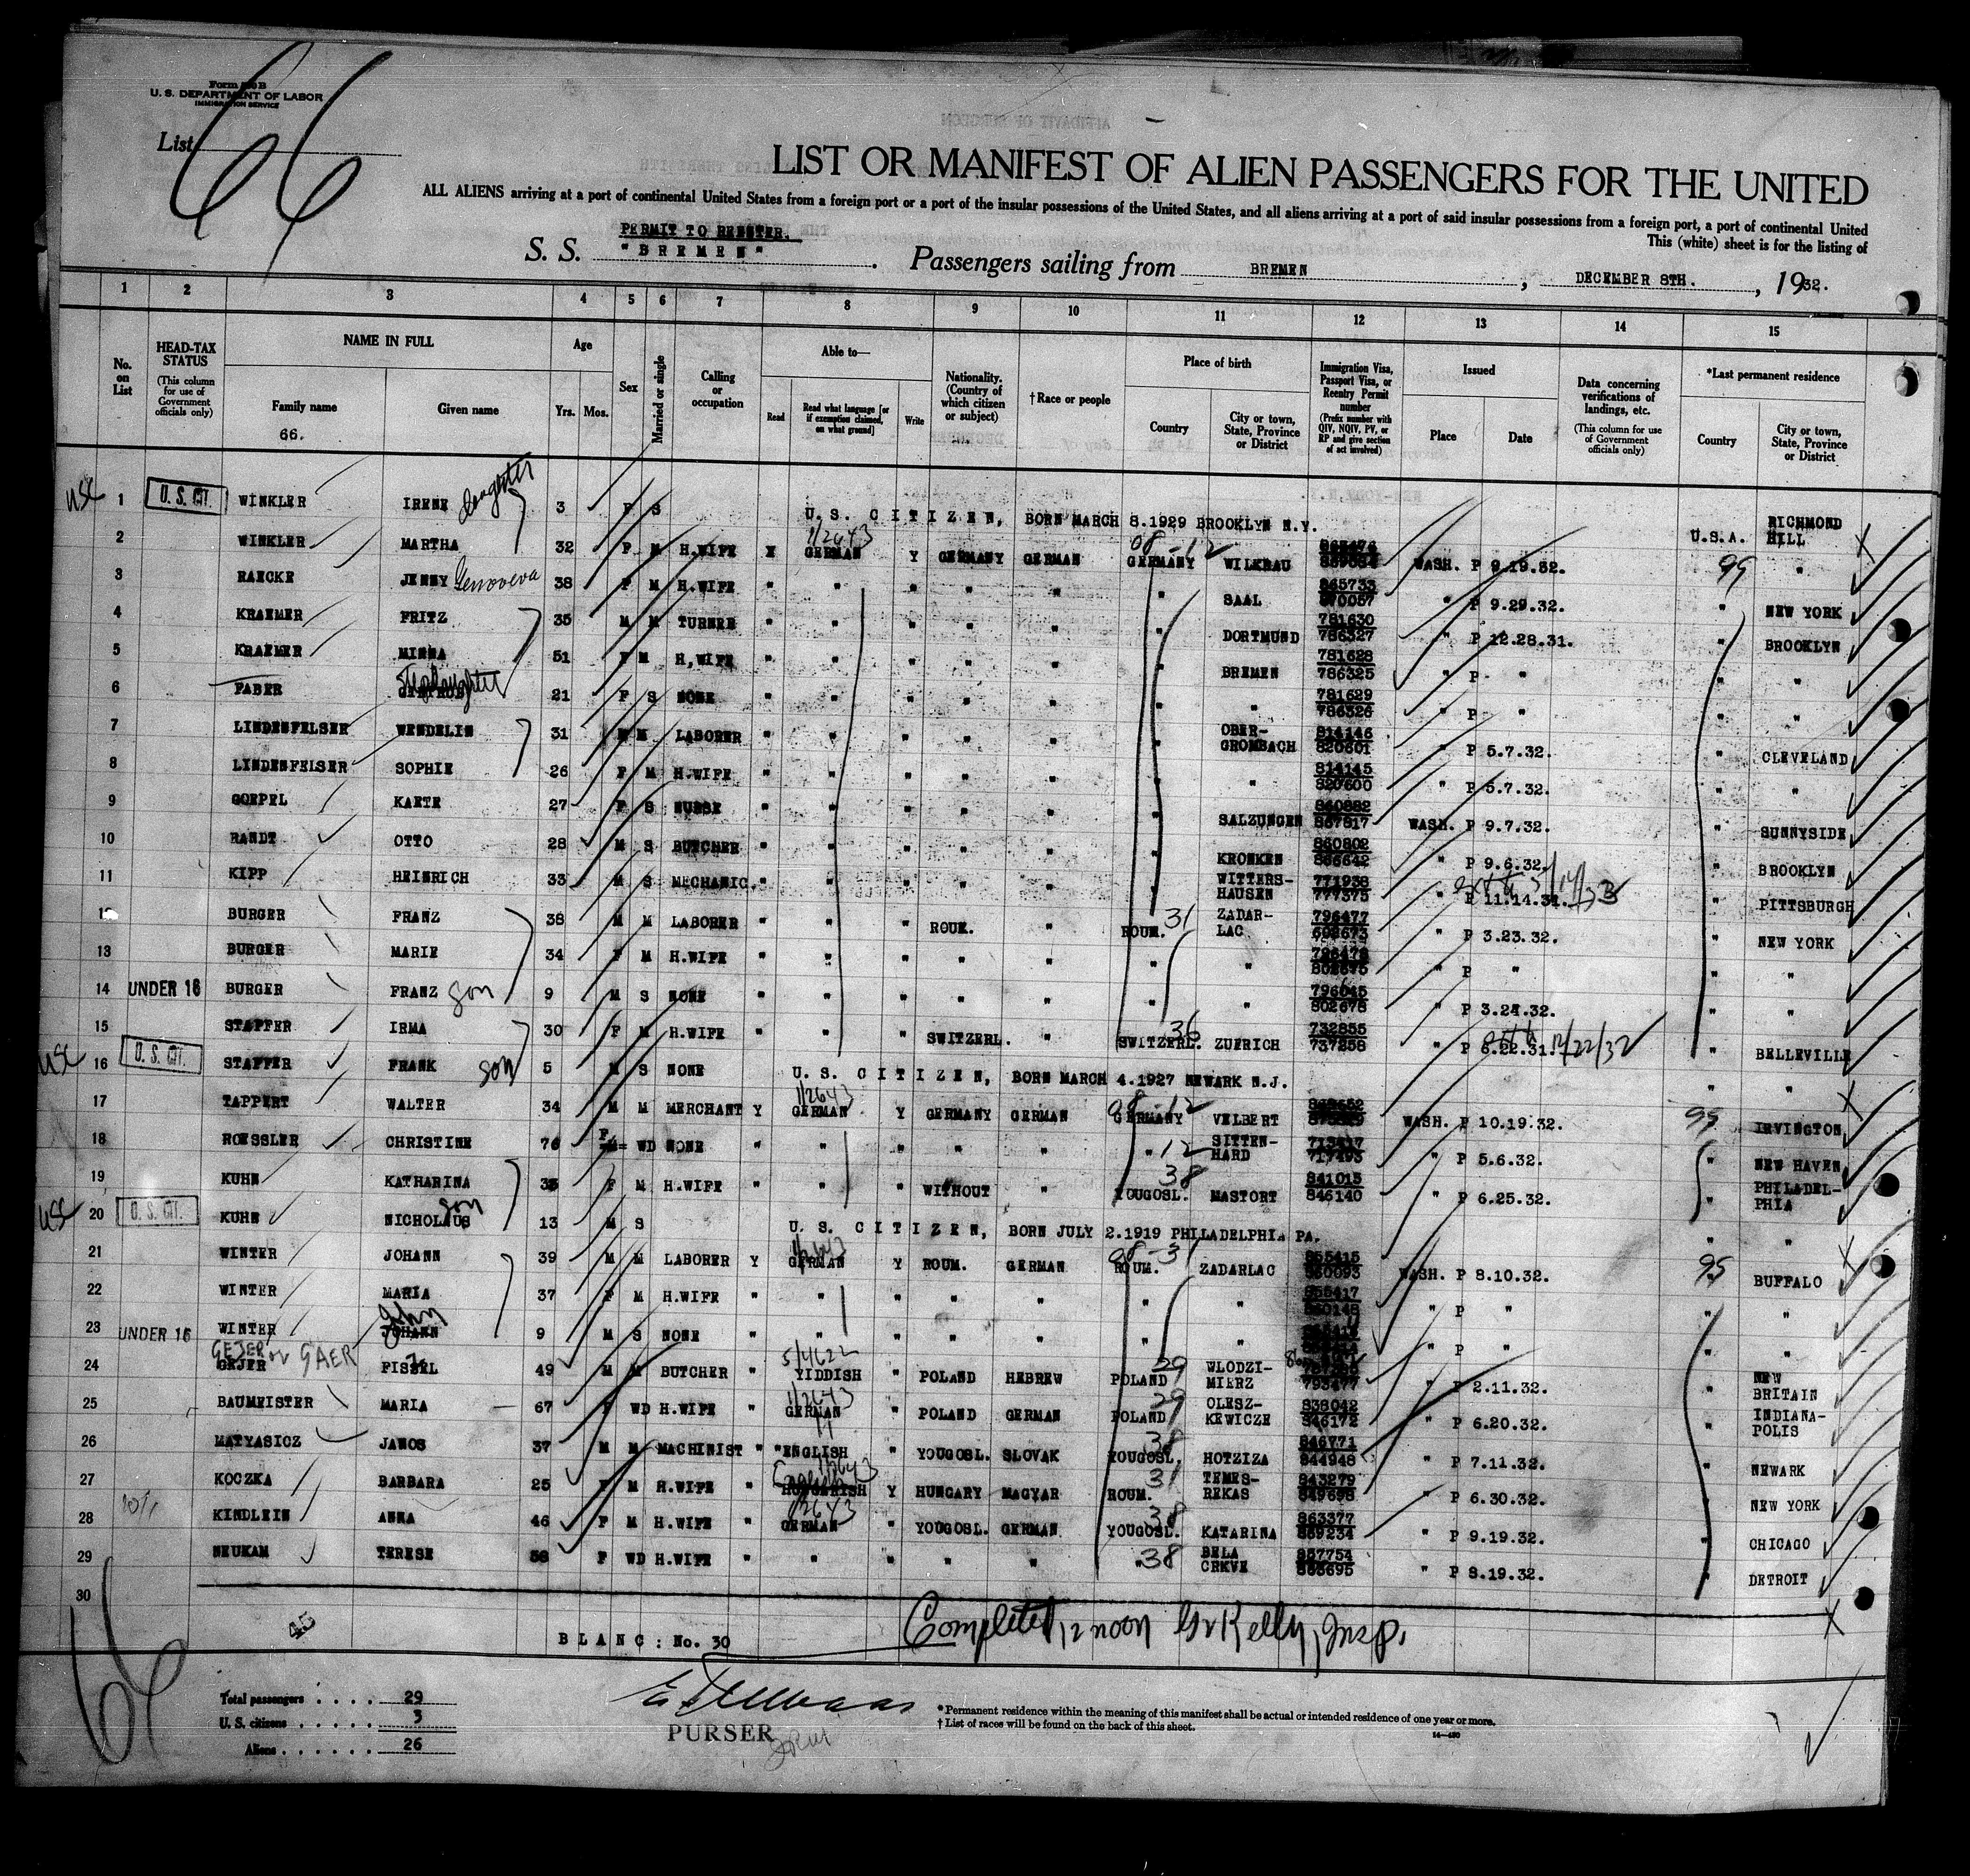 Form 500 B
U. S. DEPARTMENT OF LABOR
IMMIGRATION SERVICE
List 66
LIST OR MANIFEST OF ALIEN PASSENGERS FOR THE UNITED
ALL ALIENS arriving at a port of continental United States from a foreign port or a port of the insular possessions of the United States, and all aliens arriving at a port of said insular possessions from a foreign port, a port of continental United
This (white) sheet is for the listing of
PERMIT TO REENTER.
S. S. "BREMEN". Passengers sailing from BREMEN, DECEMBER 8TH., 1932.
1 2 3 4 5 6 7 8 9 10 11 12 13 14 15
No. on List
HEAD-TAX STATUS (This column for use of Government officials only)
NAME IN FULL
Family name
66.
Given name
Age
Yrs. Mos.
Sex
Married or single
Calling or occupation
Able to—
Read
Read what language [or if exemption claimed, on what ground]
Write
Nationality. (Country of which citizen or subject)
†Race or people
Place of birth
Country
City or town, State, Province or District
Immigration Visa, Passport Visa, or Reentry Permit number (Prefix number with QIV, NQIV, PV, or RP and give section of act involved)
Issued
Place
Date
Data concerning verifications of landings, etc. (This column for use of Government officials only)
*Last permanent residence
Country
City or town, State, Province or District
USC 1 U. S. CIT. WINKLER IRENE daughter 3 F S U.S. CITIZEN, BORN MARCH 8.1929 BROOKLYN N.Y. U.S.A. RICHMOND HILL
2 WINKLER MARTHA 32 F M H.WIFE Y GERMAN 1/2643 Y GERMANY GERMAN GERMANY 98-12 WILKRAU WASH. P 9.19.32. 99 "
3 RAECKE JENNY Genoveva 38 F M H.WIFE " " " " " " SAAL 865733 870057 " P 9.29.32. " NEW YORK
4 KRAEMER FRITZ 35 M M TURNER " " " " " " DORTMUND 781630 786327 " P 12.28.31. " BROOKLYN
5 KRAEMER MINNA 51 F M H,WIFE " " " " " " BREMEN 781628 786325 " P " " "
6 FABER Stepdaughter 21 F S NONE " " " " " " " 781629 786326 " P " " "
7 LINDENFELSER WENDELIN 31 M M LABORER " " " " " " OBER-GROMBACH 814146 820601 " P 5.7.32. " CLEVELAND
8 LINDENFELSER SOPHIE 26 F M H.WIFE " " " " " " " 814145 820600 " P 5.7.32. " "
9 GOEPEL KAETE 27 F S NURSE " " " " " " SALZUNGEN 860882 867817 WASH. P 9.7.32. " SUNNYSIDE
10 RANDT OTTO 28 M S BUTCHER " " " " " " KRONKEN 860802 866642 " P 9.6.32. " BROOKLYN
11 KIPP HEINRICH 33 M S MECHANIC. " " " " " " WITTERS-HAUSEN 771938 777375 " P 11.14.31. 3/14/33 " PITTSBURGH
BURGER FRANZ 38 M M LABORER " " " ROUM. " ROUM. 31 ZADAR-LAC 796477 602673 " P 3.23.32. " NEW YORK
13 BURGER MARIE 34 F M H.WIFE " " " " " " " " P " " "
14 UNDER 16 BURGER FRANZ son 9 M S NONE " " " " " " " 796045 802678 " P 3.24.32. " "
15 STAFFER IRMA 30 F M H.WIFE " " " SWITZERL. " SWITZERL. 36 ZUERICH 732855 737258 " P 6.22.31. 12/22/32 " BELLEVILLE
USC 16 U. S. CIT. STAFFER FRANK son 5 M S NONE U.S. CITIZEN, BORN MARCH 4.1927 NEWARK N.J. " "
17 TAPPERT WALTER 34 M M MERCHANT Y GERMAN 1/2643 Y GERMANY GERMAN GERMANY 98-12 VELBERT WASH. P 10.19.32. 99 IRVINGTON
18 ROESSLER CHRISTINE 76 F WD NONE " " " " " " 12 SITTEN-HARD 713417 717493 " P 5.6.32. " NEW HAVEN
19 KUHN KATHARINA 35 F M H.WIFE " " " WITHOUT " YOUGOSL. 38 MASTORT 841013 846140 " P 6.25.32. " PHILADEL-PHIA
USC 20 U. S. CIT. KUHN NICHOLAUS son 13 M S U. S. CITIZEN, BORN JULY 2.1919 PHILADELPHIA PA. " "
21 WINTER JOHANN 39 M M LABORER Y GERMAN 1/2643 Y ROUM. GERMAN ROUM. 98-31 ZADARLAC 855415 860093 WASH. P 8.10.32. 95 BUFFALO
22 WINTER MARIA 37 F M H.WIFE " " " " " " " 855417 860148 " P " " "
23 UNDER 16 WINTER JOHANN John 9 M S NONE " " " " " " " " P " " "
24 GEJER GEJER or GAER FISSEL 49 M M BUTCHER " YIDDISH 5/4622 " POLAND HEBREW POLAND 29 WLODZI-MIERZ 793477 " P 2.11.32. " NEW BRITAIN
25 BAUMEISTER MARIA 67 F WD H.WIFE " GERMAN 1/2643 " POLAND GERMAN POLAND 29 OLESZ-KEWICZE 838042 846172 " P 6.20.32. " INDIANA-POLIS
26 MATYASICZ JANOS 37 M M MACHINIST " "ENGLISH " YOUGOSL. SLOVAK YOUGOSL. 38 HOTZIZA 846771 844948 " P 7.11.32. " NEWARK
27 KOCZKA BARBARA 25 F M H.WIFE " HUNGARISH English 1/2643 Y HUNGARY MAGYAR ROUM. 31 TEMES-REKAS 843279 849698 " P 6.30.32. " NEW YORK
28 KINDLEIN ANNA 46 F M H.WIFE " GERMAN 1/2643 " YOUGOSL. GERMAN YOUGOSL. 38 KATARINA 863377 869234 " P 9.19.32. " CHICAGO
29 NEUKAM TERESE 58 F WD H.WIFE " " " " " " 38 BELA CRKVE 857754 863695 " P 8.19.32. " DETROIT
30
45
BLANC: No. 30
Completed, 12 noon Kelly, Insp.
Total passengers . . . . 29
U. S. citizens . . . . . 3
Aliens . . . . . . 26
PURSER
*Permanent residence within the meaning of this manifest shall be actual or intended residence of one year or more.
†List of races will be found on the back of this sheet.
14—430
66